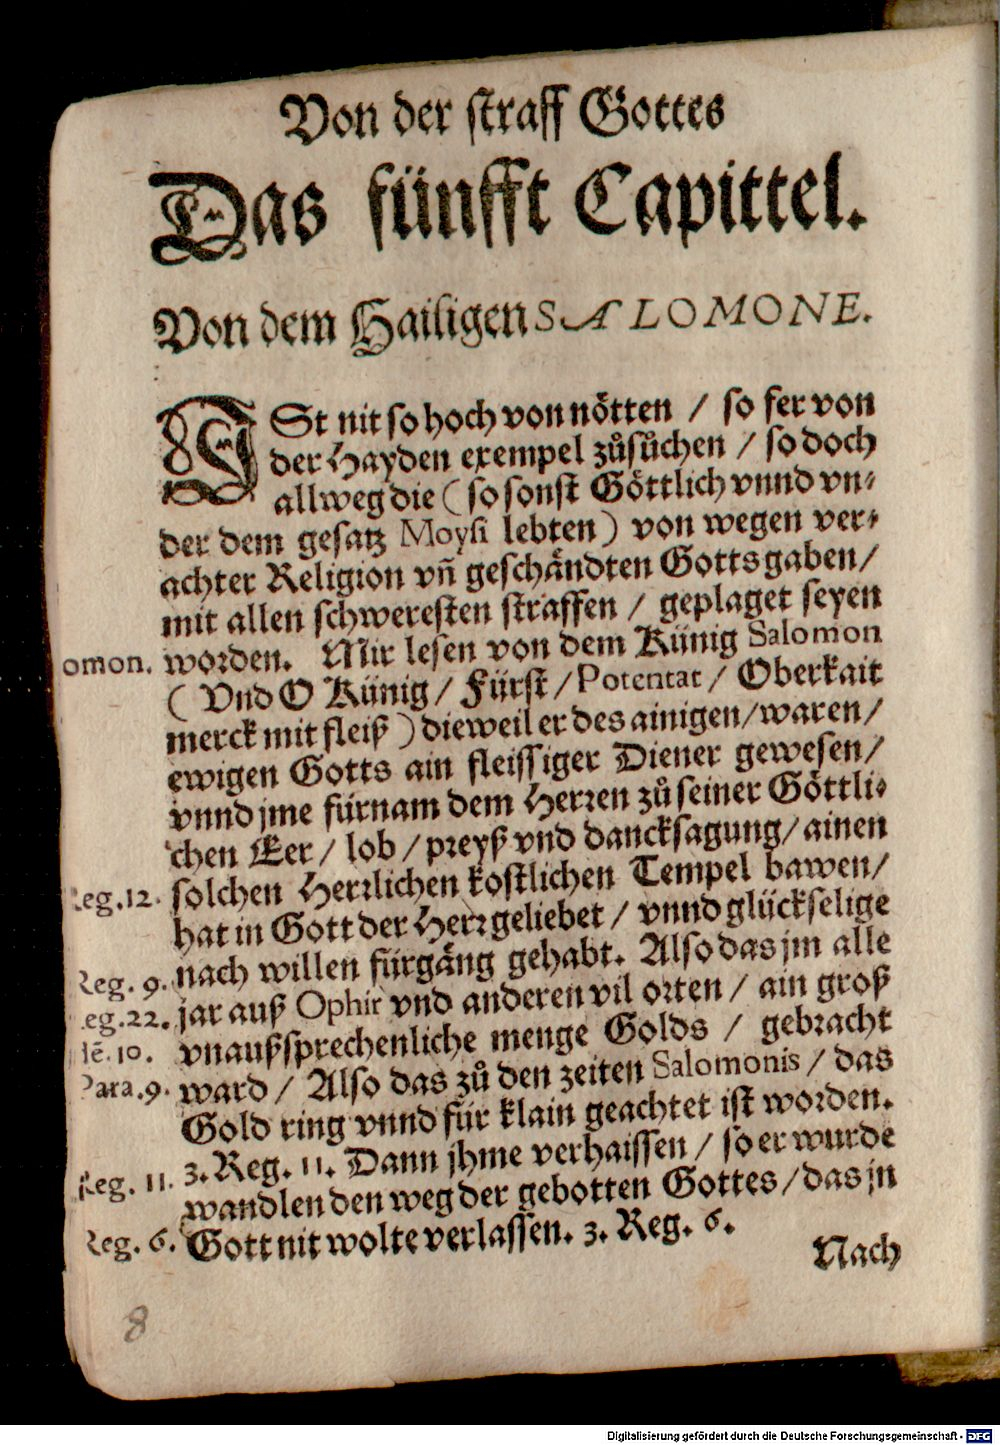 Von der straff Gottes
Das fünfft Capittel.
Von dem Hailigen SALOMONE.
ISt nit so hoch von nötten / so fer von
der Hayden exempel zůsůchen / so doch
allweg die ( so sonst Göttlich vnnd vn-
der dem gesatz Moysi lebten ) von wegen ver-
achter Religion vñ geschändten Gotts gaben /
mit allen schweresten straffen / geplaget seyen
omon. worden. Mir lesen von dem Künig Salomon
( Vnd O Künig / Fürst / Potentat / Oberkait
merck mit fleiß ) dieweil er des ainigen / waren /
ewigen Gotts ain fleissiger Diener gewesen /
vnnd jme fürnam dem Herren zů seiner Göttli-
chen Eer / lob / preyß vnd dancksagung / ainen
Reg.12. solchen Herrlichen kostlichen Tempel bawen /
hat in Gott der Herr geliebet / vnnd glückselige
Reg. 9. nach willen fürgäng gehabt. Also das jm alle
eg.22. jar auß Ophir vnd anderen vil orten / ain groß
lē. 10. vnaußsprechenliche menge Golds / gebracht
Para.9. ward / Also das zů den zeiten Salomonis / das
Gold ring vnnd für klain geachtet ist worden.
Reg. 11. 3. Reg. 11. Dann jhme verhaissen / so er wurde
wandlen den weg der gebotten Gottes / das jn
Reg. 6. Gott nit wolte verlassen. 3. Reg. 6.
Nach
8
Digitalisierung gefördert durch die Deutsche Forschungsgemeinschaft - DFG